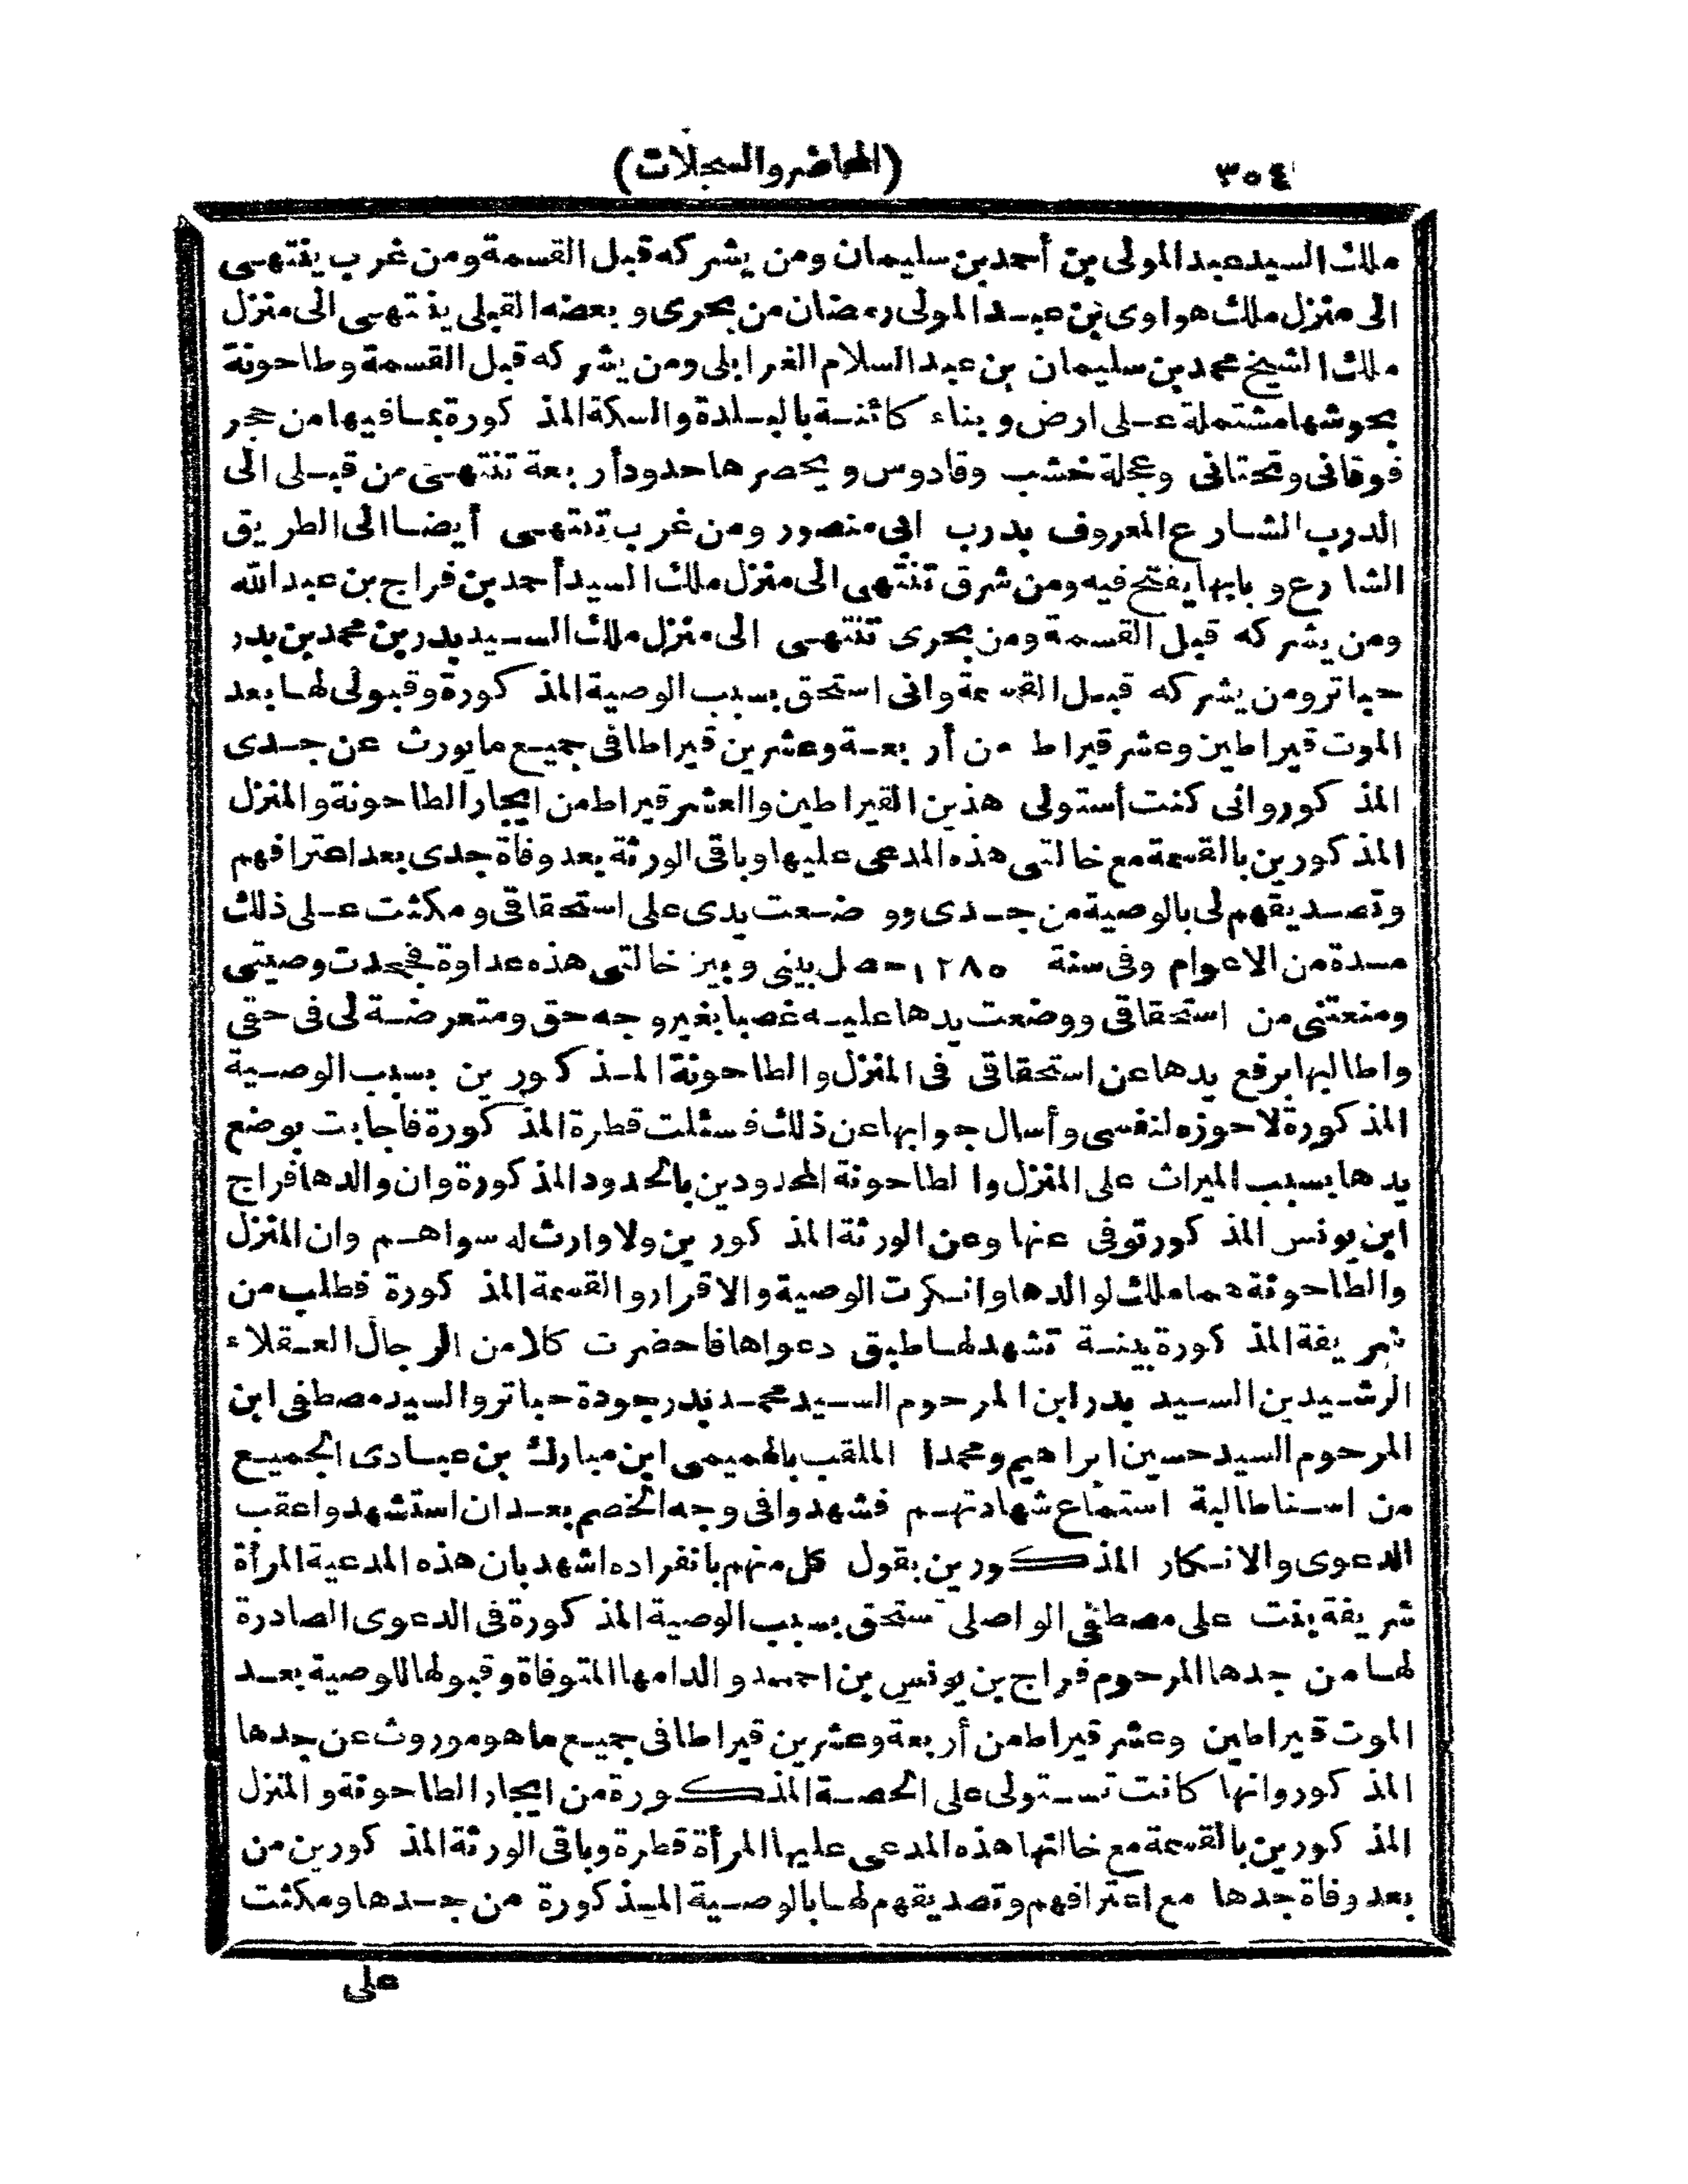 ٣٥٤
(المحاضر والسجلات)
ملك السيد عبد المولى بن أحمد بن سليمان ومن يشركه قبل القسمة ومن غرب ينتهى
الى منزل ملك هواوى بن عبد المولى رمضان من بحرى وبعضه القبلى ينتهى الى منزل
ملك الشيخ محمد بن سليمان بن عبد السلام الغرابلى ومن يشركه قبل القسمة وطاحونة
بحوشها مشتملة على ارض وبناء كائنة بالبلدة والسكة المذكورة بما فيها من حجر
فوقانى وتحتانى وعجلة خشب وقادوس ويحصرها حدود أربعة تنتهى من قبلى الى
الدرب الشارع المعروف بدرب ابى منصور ومن غرب تنتهى أيضا الى الطريق
الشارع وبابها يفتح فيه ومن شرق تنتهى الى منزل ملك السيد أحمد بن فراج بن عبد الله
ومن يشركه قبل القسمة ومن بحرى تنتهى الى منزل ملك السيد بدر بن محمد بن بدر
حباتر ومن يشركه قبل القسمة وانى استحق بسبب الوصية المذكورة وقبولى لها بعد
الموت قيراطين وعشر قيراط من أربعة وعشرين قيراطا فى جميع ما يورث عن جدى
المذكور وانى كنت أستولى هذين القيراطين والعشر قيراط من ايجار الطاحونة والمنزل
المذكورين بالقسمة مع خالتى هذه المدعى عليها وباقى الورثة بعد وفاة جدى بعد اعترافهم
وتصديقهم لى بالوصية من جدى ووضعت يدى على استحقاقى ومكثت على ذلك
مدة من الاعوام وفى سنة ١٢٨٥ حصل بينى وبين خالتى هذه عداوة فجحدت وصيتى
ومنعتنى من استحقاقى ووضعت يدها عليه غصبا بغير وجه حق ومتعرضة لى فى حقى
واطالبها برفع يدها عن استحقاقى فى المنزل والطاحونة المذكورين بسبب الوصية
المذكورة لاحوزه لنفسى وأسال جوابها عن ذلك فسئلت قطرة المذكورة فأجابت بوضع
يدها بسبب الميراث على المنزل والطاحونة المحدودين بالحدود المذكورة وان والدها فراج
ابن يونس المذكور توفى عنها وعن الورثة المذكورين ولا وارث له سواهم وان المنزل
والطاحونة هما ملك لوالدها وانكرت الوصية والاقرار والقسمة المذكورة فطلب من
شريفة المذكورة بينة تشهد لها طبق دعواها فاحضرت كلا من الرجال العقلاء
الرشيدين السيد بدر ابن المرحوم السيد محمد بدر جودة حباتر والسيد مصطفى ابن
المرحوم السيد حسين ابراهيم ومحمدا الملقب بالهميمى ابن مبارك بن عبادى الجميع
من اسنا طالبة استماع شهادتهم فشهدوا فى وجه الخصم بعد ان استشهدوا عقب
الدعوى والانكار المذكورين بقول كل منهم بانفراده اشهد بان هذه المدعية المرأة
شريفة بنت على مصطفى الواصلى تستحق بسبب الوصية المذكورة فى الدعوى الصادرة
لها من جدها المرحوم فراج بن يونس بن احمد والد امها المتوفاة وقبولها للوصية بعد
الموت قيراطين وعشر قيراط من أربعة وعشرين قيراطا فى جميع ما هو موروث عن جدها
المذكور وانها كانت تستولى على الحصة المذكورة من ايجار الطاحونة والمنزل
المذكورين بالقسمة مع خالتها هذه المدعى عليها المرأة قطرة وباقى الورثة المذكورين من
بعد وفاة جدها مع اعترافهم وتصديقهم لها بالوصية المذكورة من جدها ومكثت
على